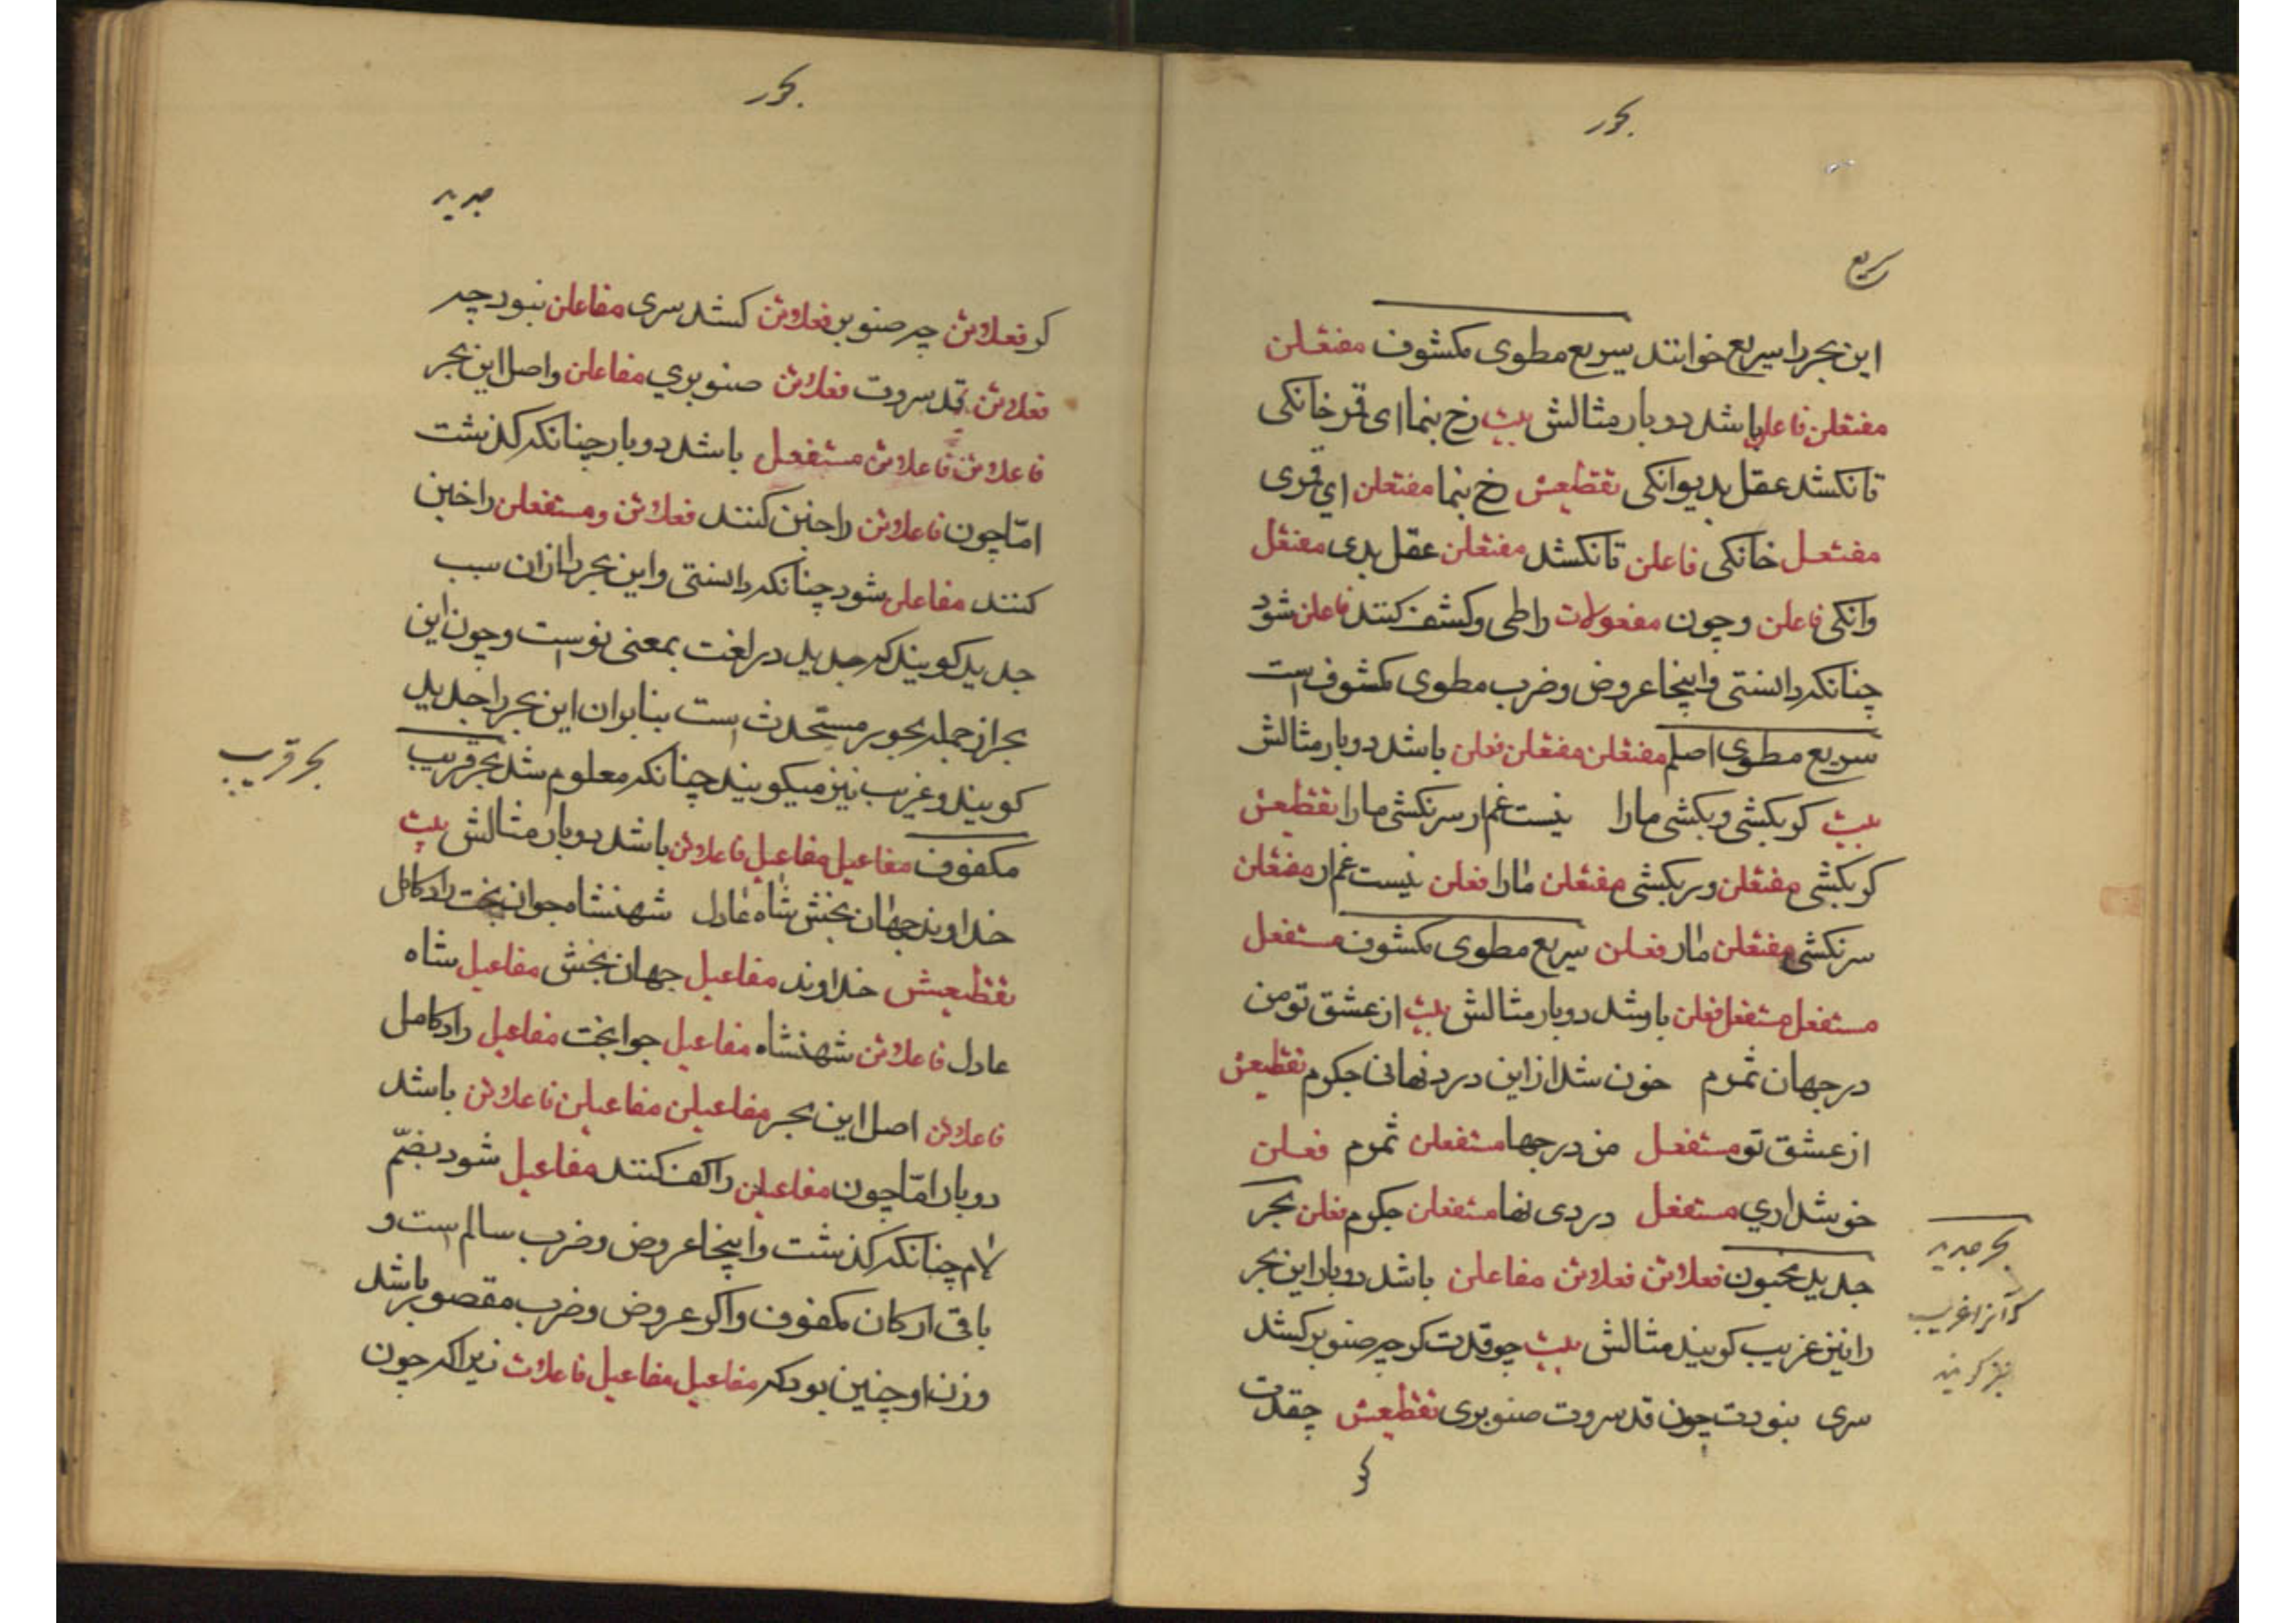 بحور
سریع
این بحر را سریع خوانند سریع مطوی مکشوف مفتعلن
مفتعلن فاعلن باشد دو بار مثالش بیت رخ بنما ای قمر خانکی
تا نکشد عقل بدیوانکی تقطیعش رخ بنما مفتعلن ای قمری
مفتعل خانکی فاعلن تا نکشد مفتعلن عقل بدی مفتعل
وانکی فاعلن و چون مفعولات را طی و کشف کنند فاعلن شود
چنانکه دانستی و اینجا عروض و ضرب مطوی مکشوف است
سریع مطوی اصلم مفتعلن مفتعلن فعلن باشد دو بار مثالش
بیت کر بکشی ور بکشی ما را نیست غم ار سرنکشی ما را تقطیعش
کر بکشی مفتعلن ور بکشی مفتعلن ما را فعلن نیست غم ار مفتعلن
سرنکشی مفتعلن مارا فعلن سریع مطوی مکشوف مستفعل
مستفعل مستفعل فعلن باشد دو بار مثالش بیت از عشق تو من
در جهان ثمرم خون شد از این درد نهانی جکرم تقطیعش
از عشق تو مستفعل من در جها مستفعلن ثمرم فعلن
خو شداری مستفعل دردی نها مستفعلن جکرم فعلن بحر
جدید مخبون فعلاتن فعلاتن مفاعلن باشد دو بار این بحر
را نیز غریب کویند مثالش بیت چو قدت کر چه صنوبر کشد
سری بنودت چون قد سروت صنوبری تقطیعش چقدت
بحر جدید
که آنرا غریب
نیز کویند
کر
بحور
جدید
کر فعلاتن چه صنوبر فعلاتن کشد سری مفاعلن نبود چه
فعلاتن قد سروت فعلاتن صنوبری مفاعلن و اصل این بحر
فاعلاتن فاعلاتن مستفعل باشد دو بار چنانکه کذشت
امّا چون فاعلاتن را خبن کنند فعلاتن و مستفعلن را خبن
کنند مفاعلن شود چنانکه دانستی و این بحر را از ان سبب
جدید کویند که جدید در لغت بمعنی نو است و چون این
بحر از جمله بحور مستحدث است بنابران این بحر را جدید
کویند و غریب نیز میکویند چنانکه معلوم شد بحر قریب
مکفوف مفاعیل مفاعیل فاعلاتن باشد دو بار مثالش بیت
خداوند جهان بخش شاه عادل شهنشاه جوان بخت راد کامل
تقطیعش خداوند مفاعیل جهان بخش مفاعیل شاه
عادل فاعلاتن شهنشاه مفاعیل جوابخت مفاعیل راد کامل
فاعلاتن اصل این بحر مفاعیلن مفاعیلن فاعلاتن باشد
دو بار امّا چون مفاعیلن را کف کنند مفاعیل شود بضمّ
لام چنانکه کذشت و اینجا عروض و ضرب سالم است و
باقی ارکان مکفوف و اکر عروض و ضرب مقصور باشد
وزن او چنین بود که مفاعیل مفاعیل فاعلات زیرا که چون
بحر قریب